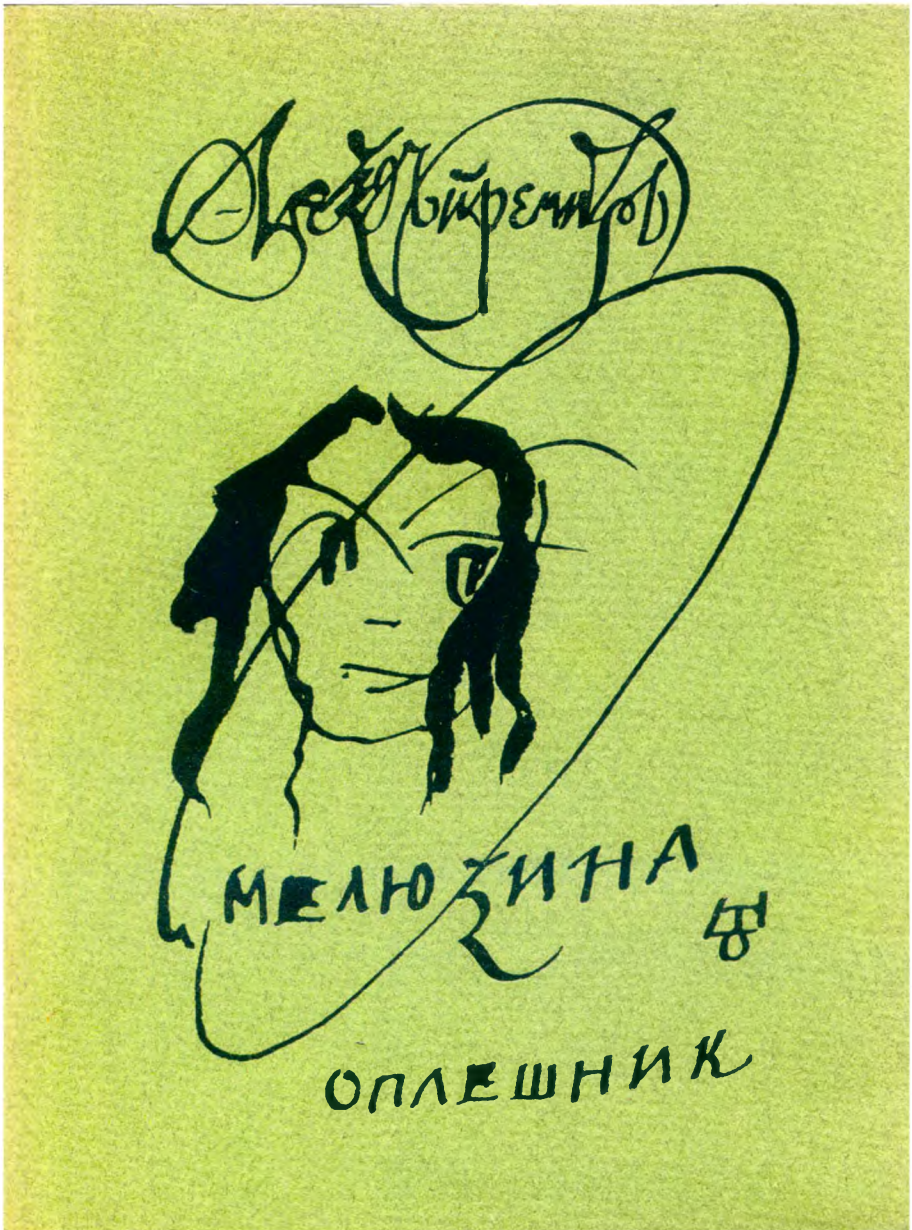 Алексей Ремизов
МЕЛЮЗИНА
ОПЛЕШНИК